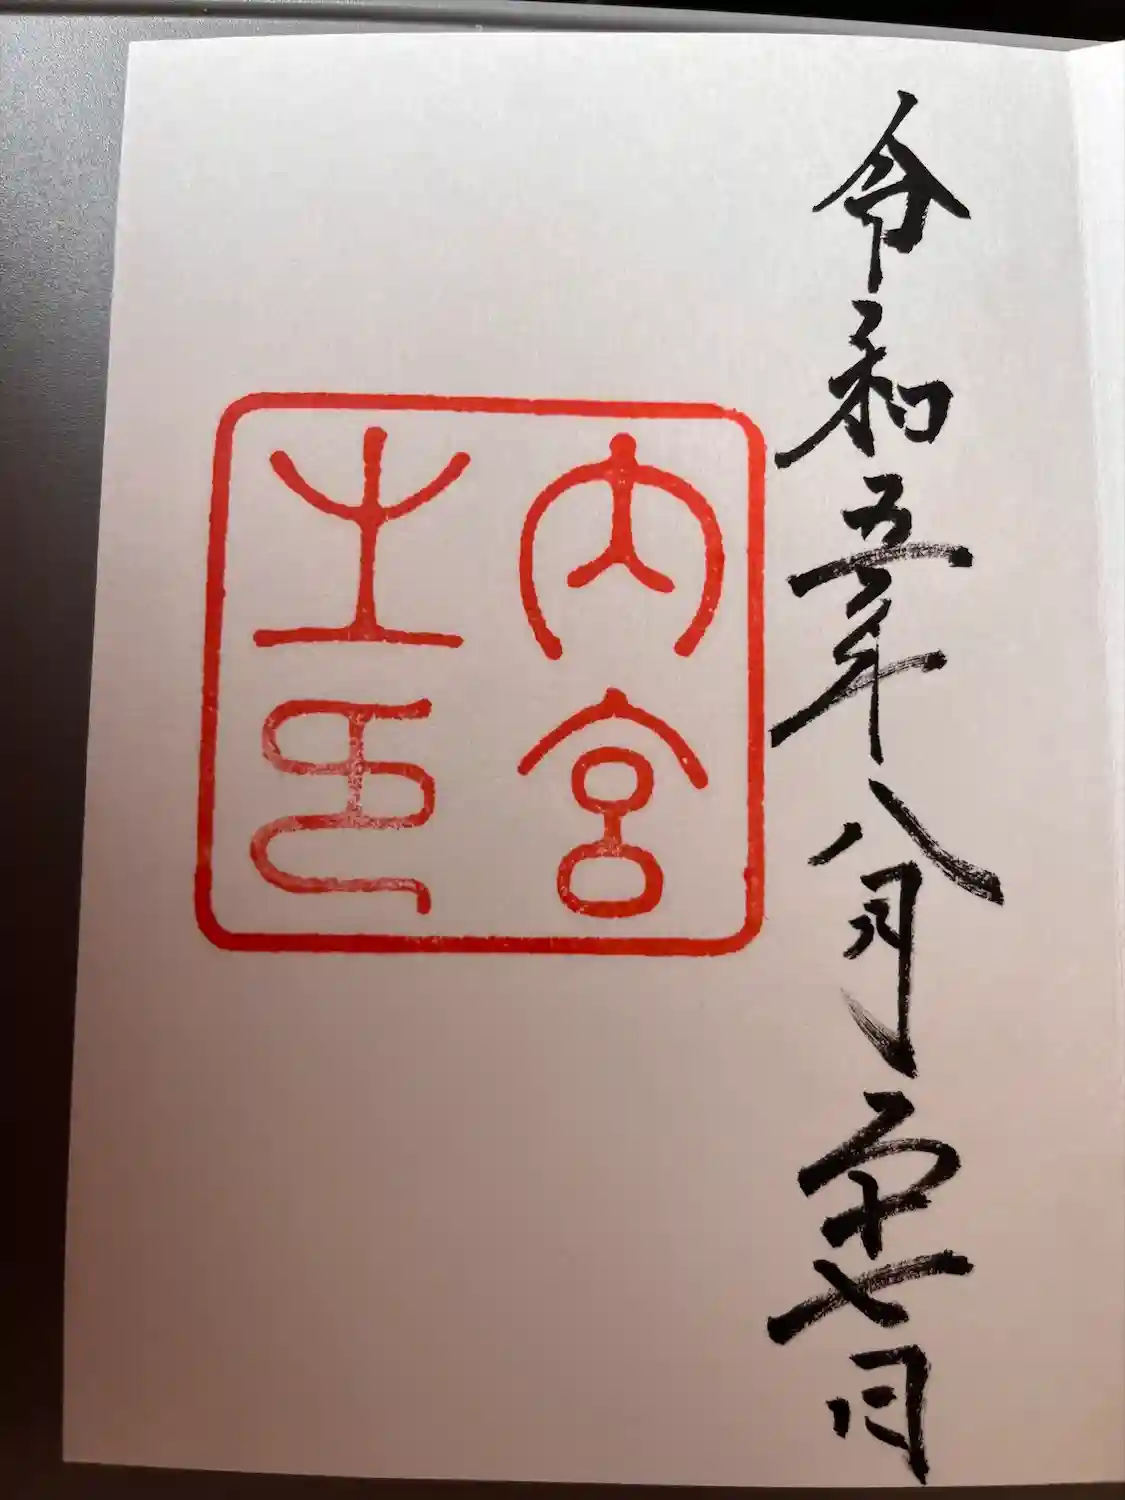 令和五年八月二十七日
内宮
之印